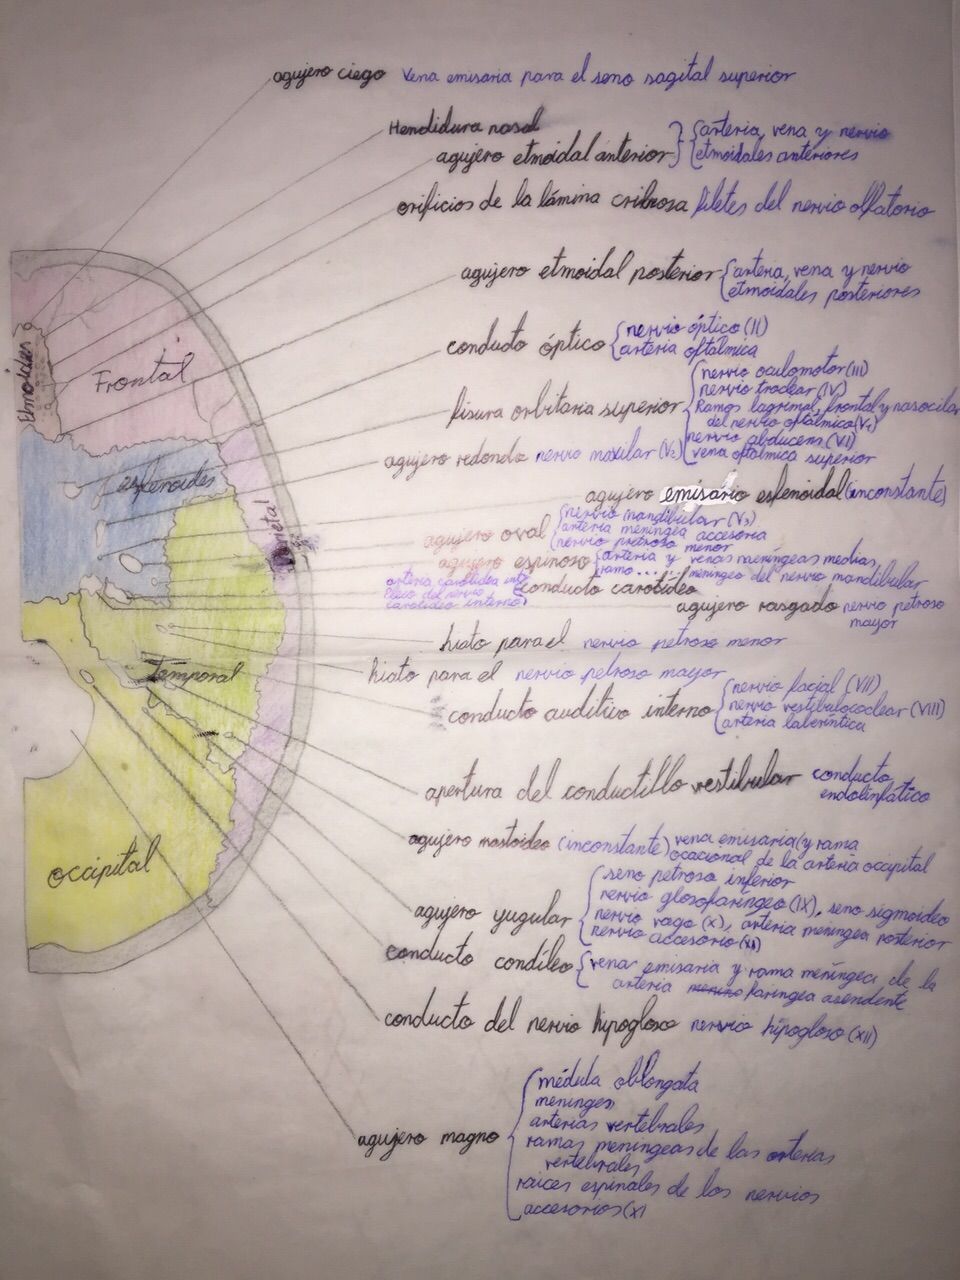 agujero ciego vena emisaria para el seno sagital superior
Hendidura nasal
agujero etmoidal anterior
arteria, vena y nervio
etmoidales anteriores
orificios de la lámina cribosa filetes del nervio olfatorio
agujero etmoidal posterior
arteria, vena y nervio
etmoidales posteriores
conducto óptico
nervio óptico (II)
arteria oftálmica
fisura orbitaria superior
nervio oculomotor (III)
nervio troclear (IV)
Ramos lagrimal, frontal y nasociliar
del nervio oftálmico (V₁)
nervio abducens (VI)
vena oftálmica superior
agujero redondo nervio maxilar (V₂)
agujero emisario esfenoidal (inconstante)
agujero oval
nervio mandibular (V₃)
arteria meníngea accesoria
nervio pretroso menor
agujero espinoso
arteria y venas meníngeas medias
ramo meníngeo del nervio mandibular
conducto carotídeo
arteria carótidea int
carotídeo interno
agujero rasgado nervio petroso
mayor
hiato para el nervio petroso menor
hiato para el nervio petroso mayor
conducto auditivo interno
nervio facial (VII)
nervio vestibulococlear (VIII)
arteria laberíntica
apertura del conductillo vestibular conducto
endolinfático
agujero mastoideo (inconstante) vena emisaria (y rama
ocacional de la arteria occipital
agujero yugular
seno petroso inferior
nervio glosofaríngeo (IX), seno sigmoideo
nervio vago (X), arteria meníngea posterior
nervio accesorio (XI)
conducto condíleo
vena emisaria y rama meníngea de la
arteria faringea asendente
conducto del nervio hipogloso nervio hipogloso (XII)
agujero magno
médula oblongata
meninges
arterias vertebrales
ramas meningeas de las arterias
vertebrales
raíces espinales de los nervios
accesorios (XI
Etmoides
Frontal
esfenoides
Parietal
temporal
occipital